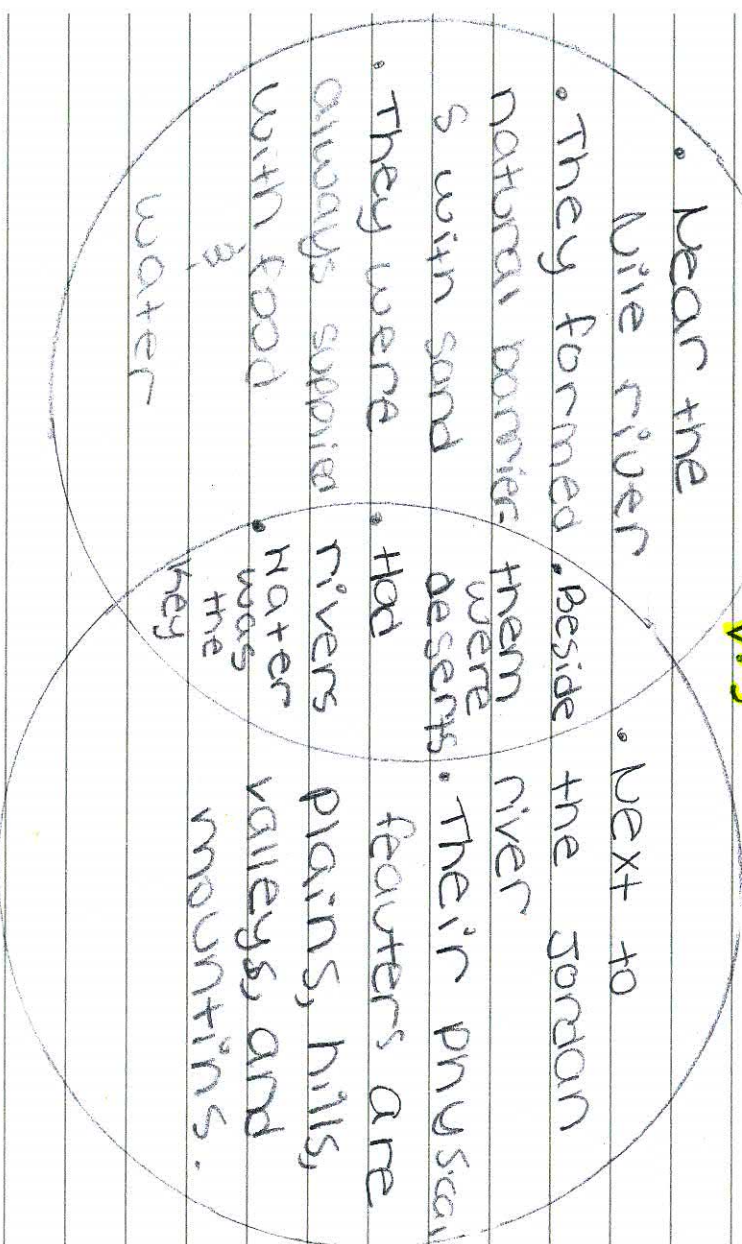 v.s
• Near the
Nile river
• They formed
natural barrier-
s with sand
• They were
always supplied
with food
&
water
• Beside
them
were
deserts
• Had
rivers
• Water
was
the
key
• Next to
the Jordan
river
• Their physical
feauters are
plains, hills,
valleys, and
mountins.